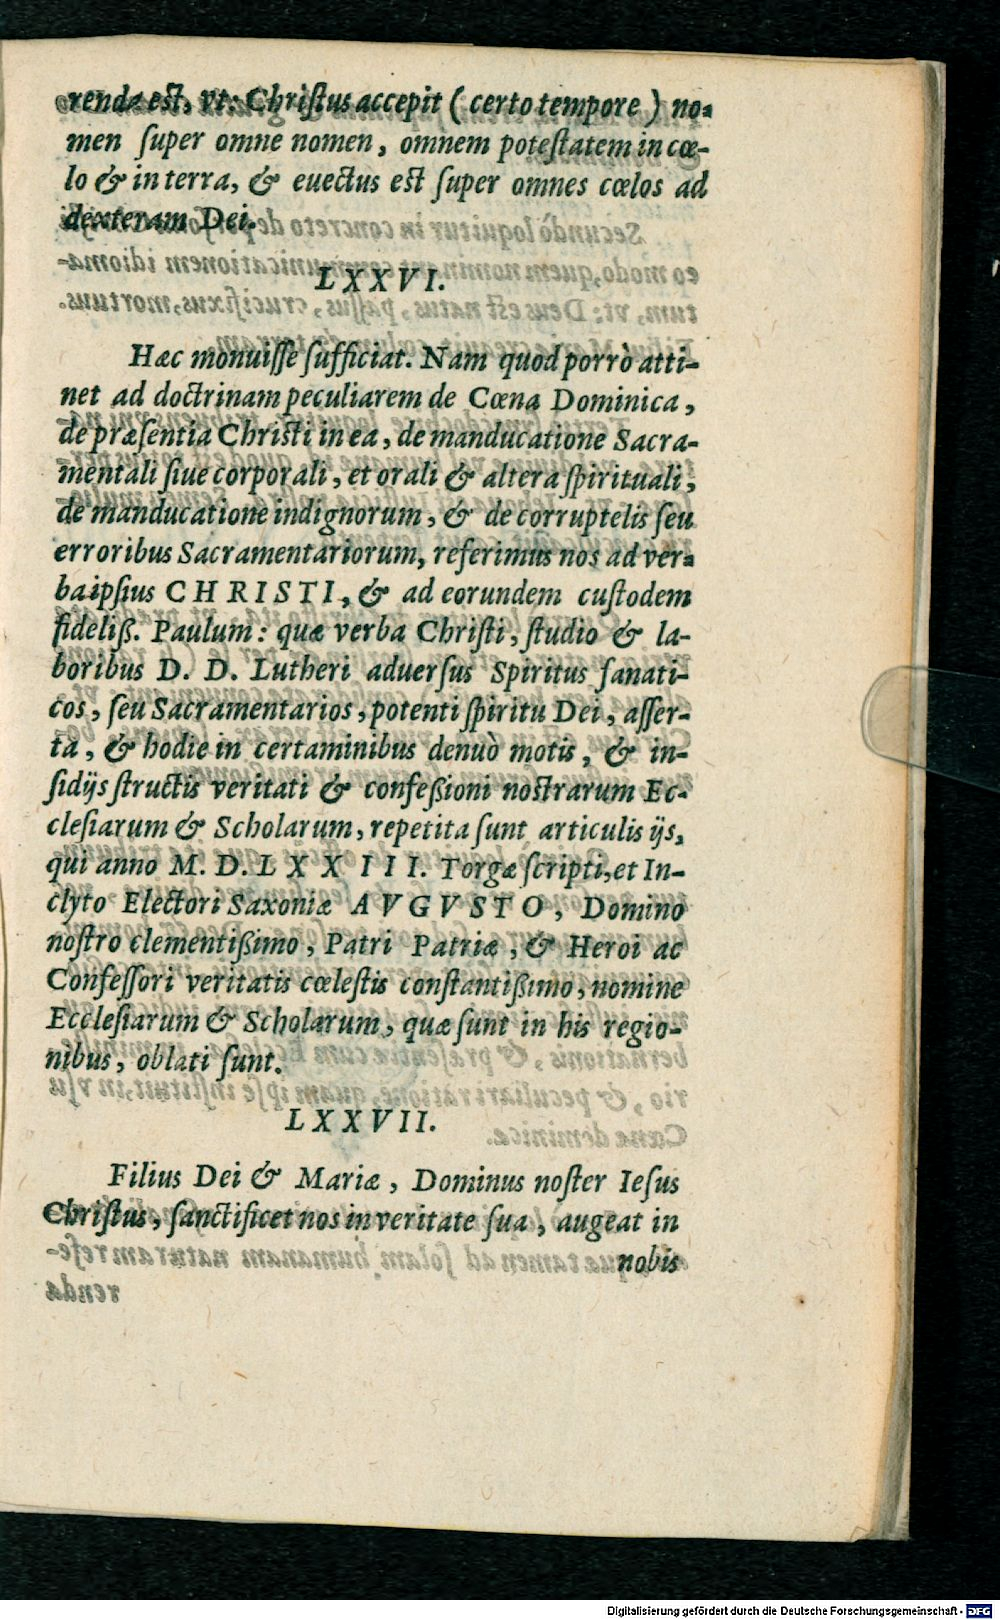 rendæ est, vt: Christus accepit (certo tempore) no-
men super omne nomen, omnem potestatem in cœ-
lo & in terra, & euectus est super omnes cœlos ad
dexteram Dei.
LXXVI.
Hæc monuisse sufficiat. Nam quod porrò atti-
net ad doctrinam peculiarem de Cœna Dominica,
de præsentia Christi in ea, de manducatione Sacra-
mentali siue corporali, et orali & altera spirituali,
de manducatione indignorum, & de corruptelis seu
erroribus Sacramentariorum, referimus nos ad ver-
ba ipsius CHRISTI, & ad eorundem custodem
fideliß. Paulum: quæ verba Christi, studio & la-
boribus D. D. Lutheri aduersus Spiritus fanati-
cos, seu Sacramentarios, potenti spiritu Dei, asser-
ta, & hodie in certaminibus denuò motis, & in-
sidijs structis veritati & confeßioni nostrarum Ec-
clesiarum & Scholarum, repetita sunt articulis ijs,
qui anno M. D. L X X I I I. Torgæ scripti, et In-
clyto Electori Saxoniæ AVGVSTO, Domino
nostro clementißimo, Patri Patriæ, & Heroi ac
Confessori veritatis cœlestis constantißimo, nomine
Ecclesiarum & Scholarum, quæ sunt in his regio-
nibus, oblati sunt.
LXXVII.
Filius Dei & Mariæ, Dominus noster Iesus
Christus, sanctificet nos in veritate sua, augeat in
nobis
Digitalisierung gefördert durch die Deutsche Forschungsgemeinschaft - DFG